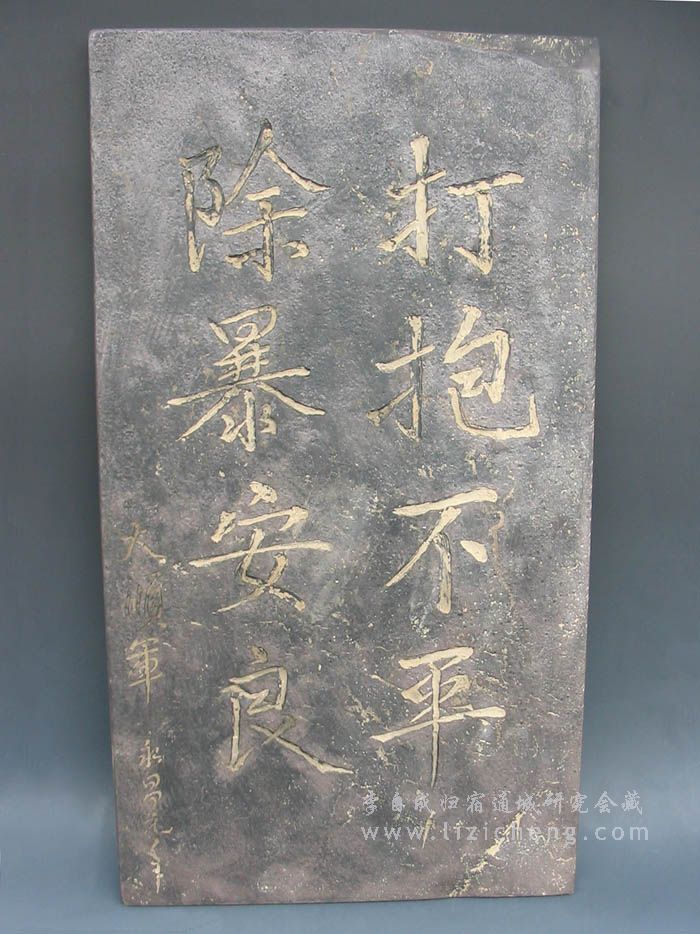 打抱不平
除暴安良
大順軍 永昌元年
李自成归宿通城研究会藏
www.lizicheng.com